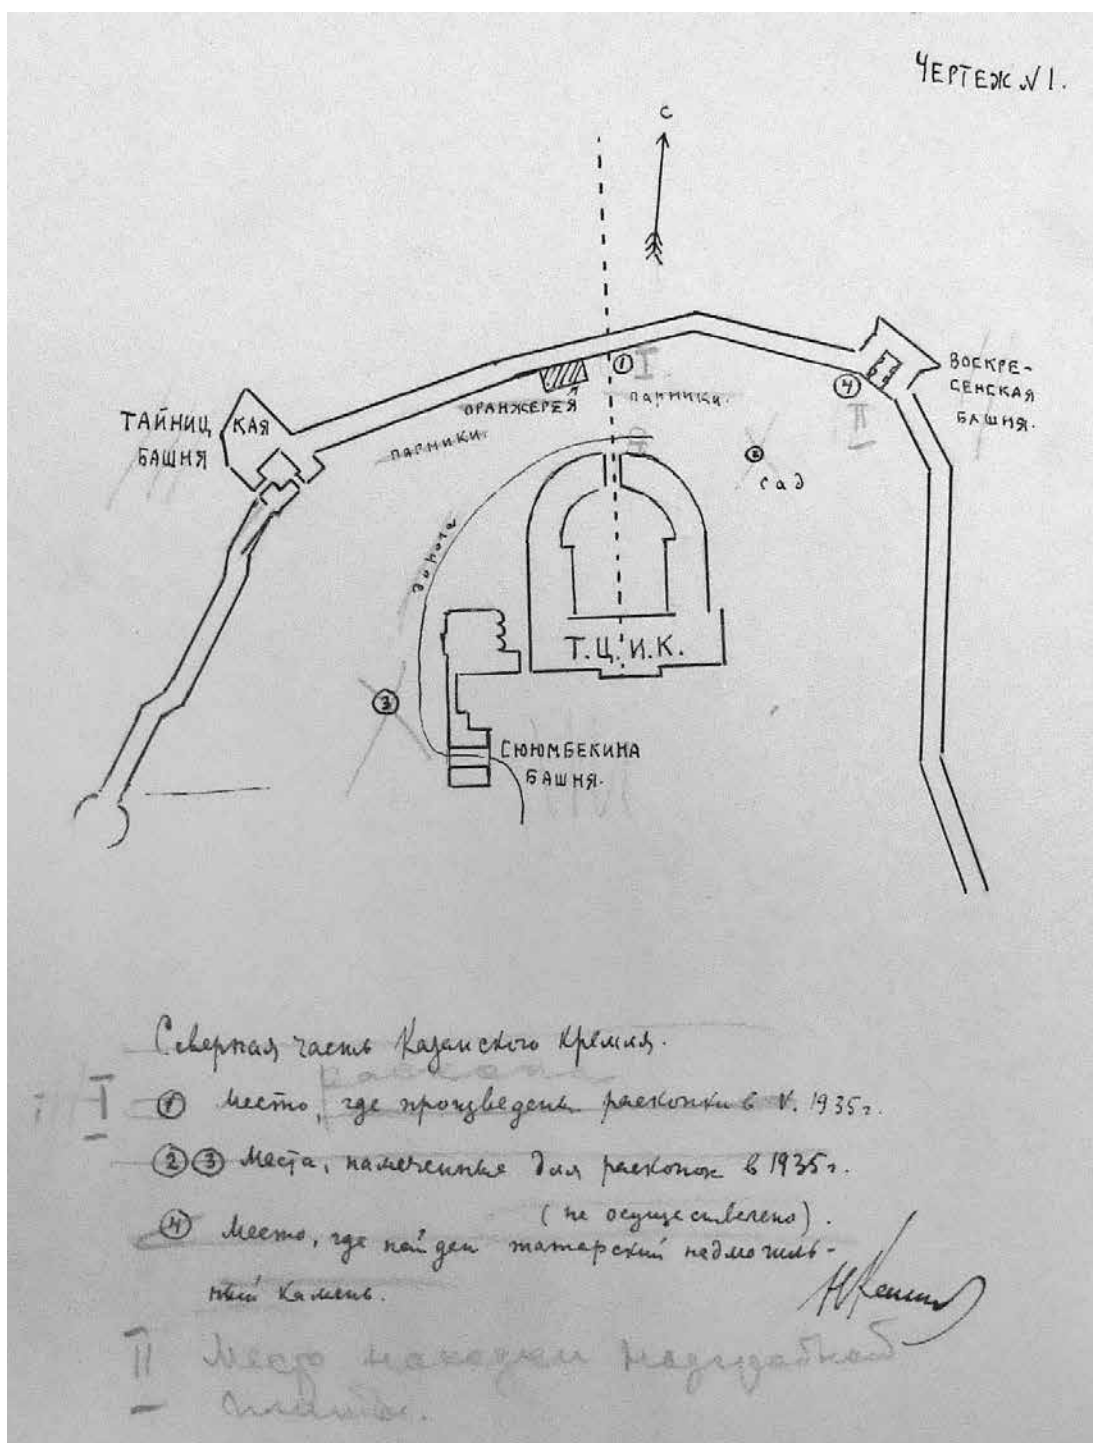 ЧЕРТЕЖ N 1.
С
① I
ВОСКРЕ-
СЕНСКАЯ
БАШНЯ.
④
II
ОРАНЖЕРЕЯ
ПАРНИКИ.
ТАЙНИЦКАЯ
БАШНЯ
ПАРНИКИ.
②
сад
дорога
Т.Ц.И.К.
③
СЮЮМБЕКИНА
БАШНЯ.
Северная часть Казанского Кремля.
I ① Место, где произведены раскопки в V. 1935 г.
② ③ Места, намеченные для раскопок в 1935 г.
(не осуществлено).
④ Место, где найден татарский надмогиль-
ный камень.
II Место находки надгробной
плиты.